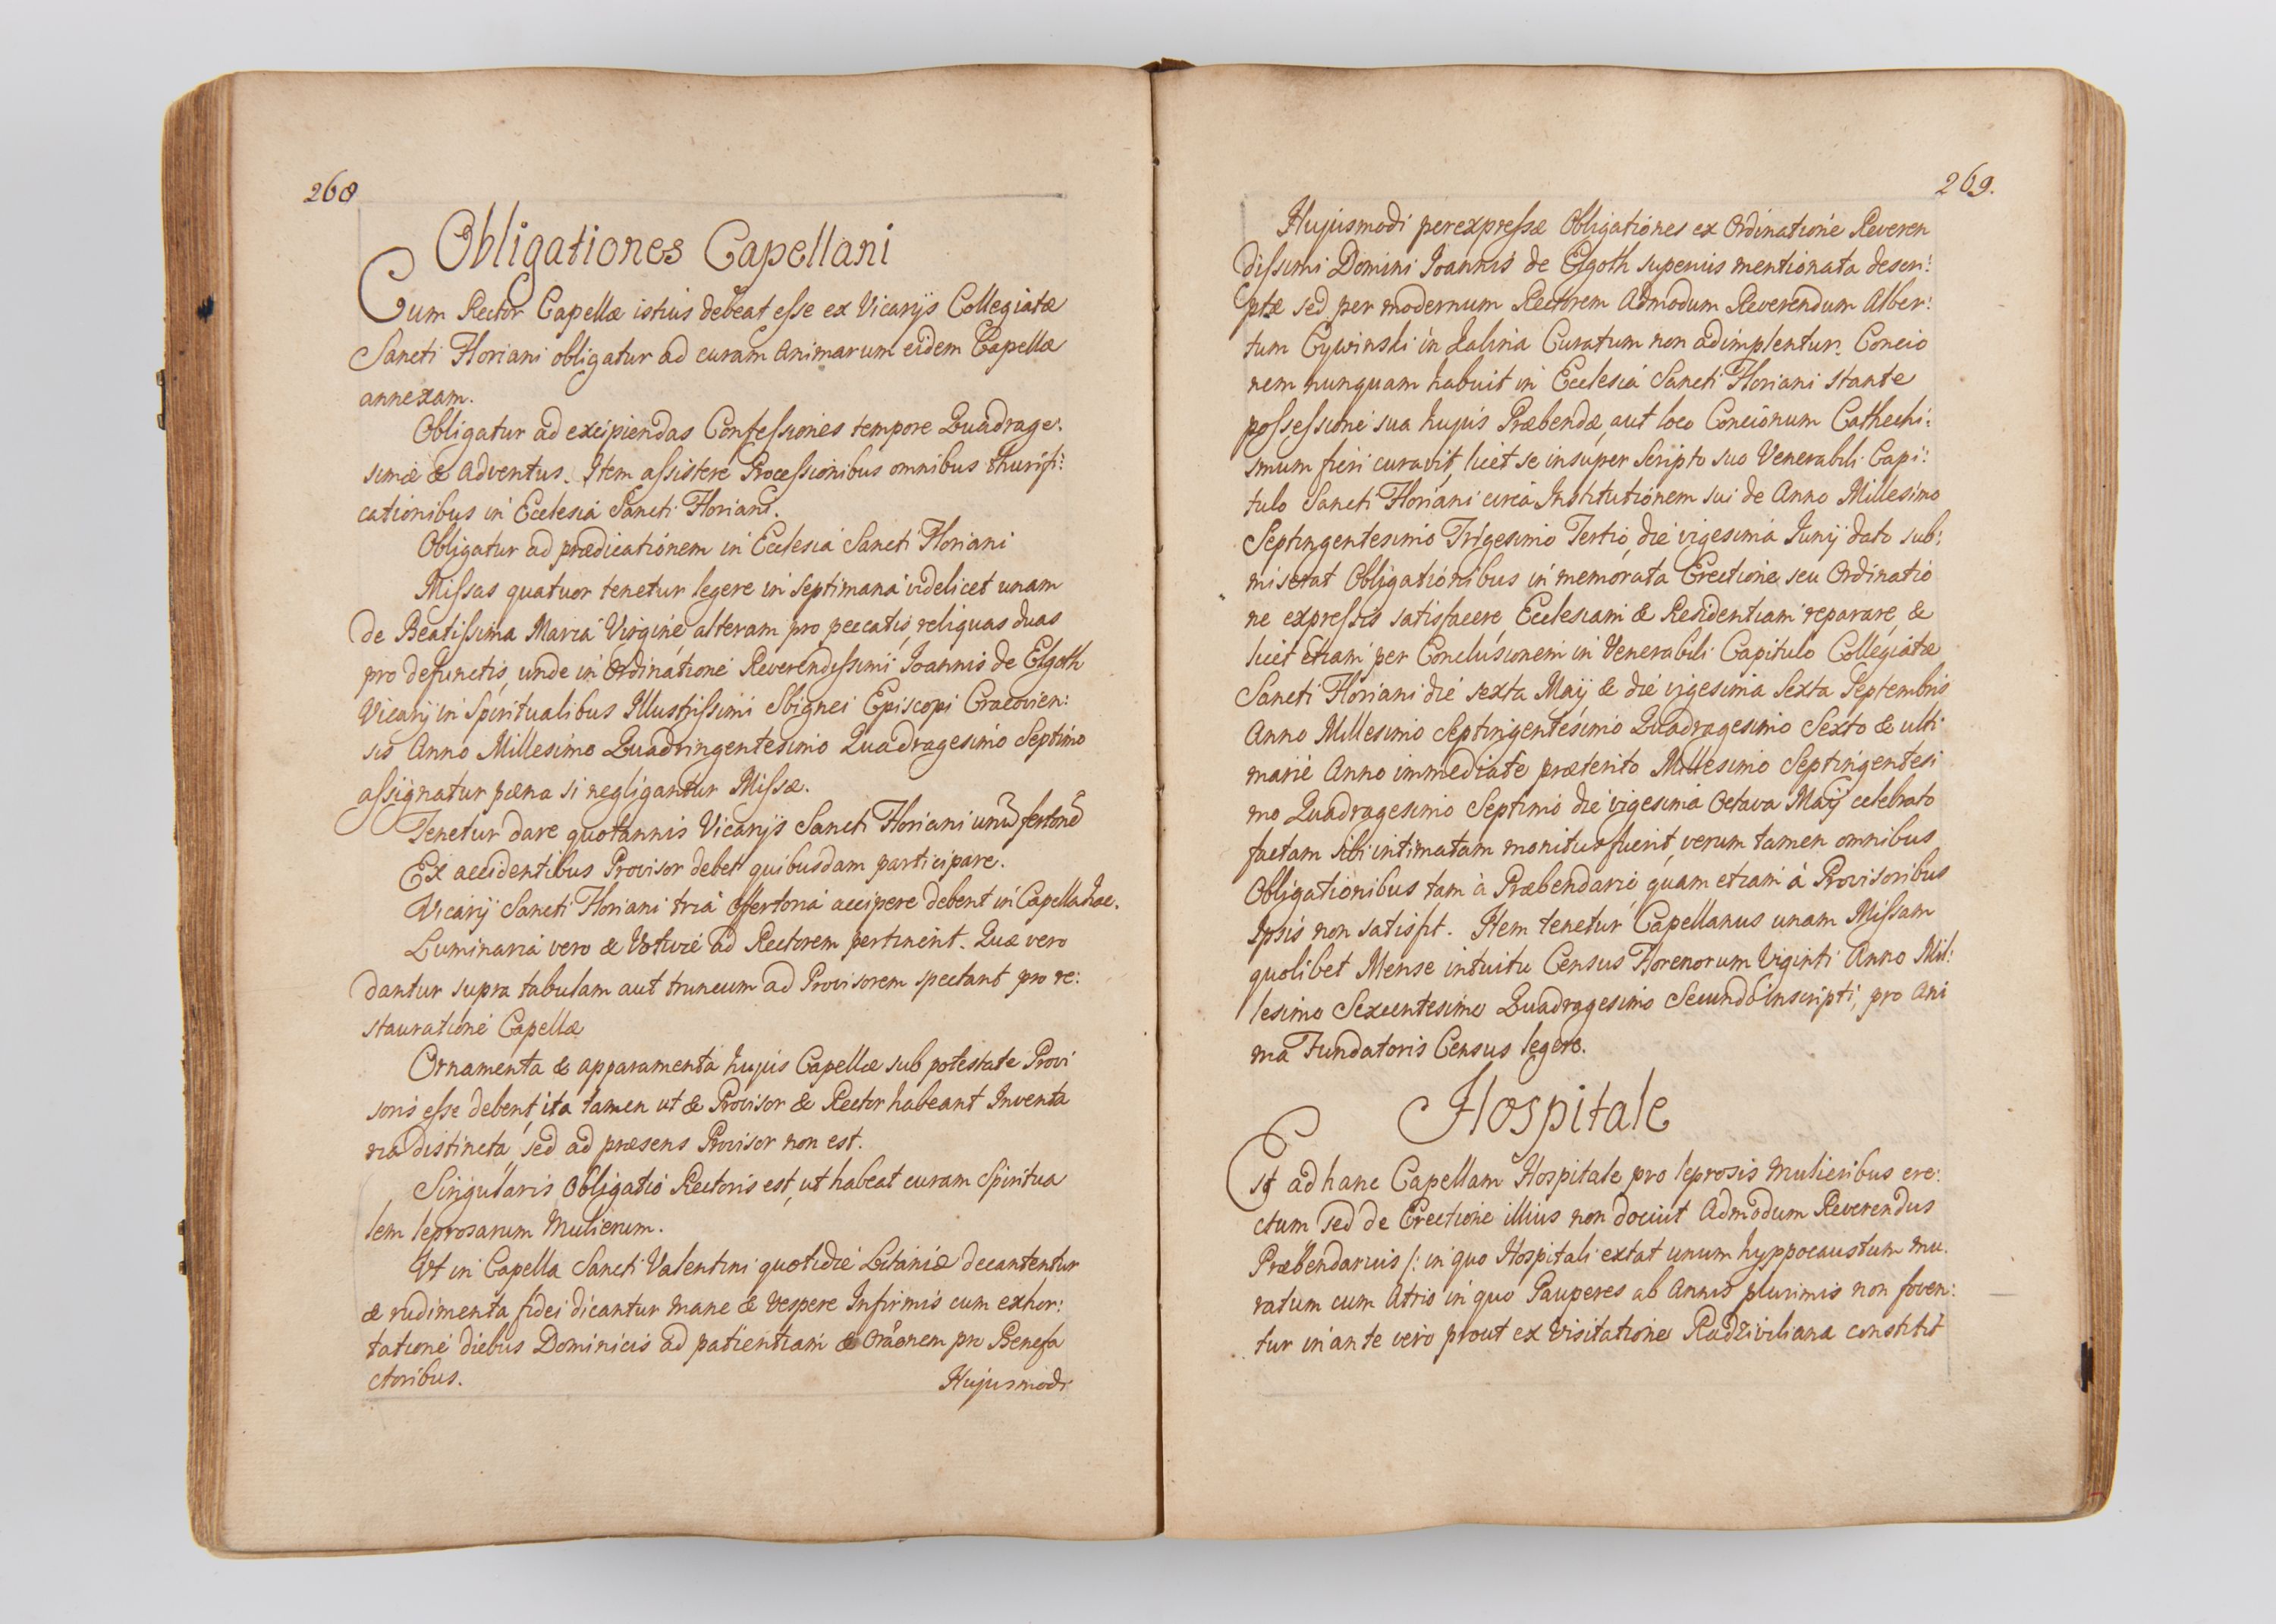 268
Obligationes Capellani
Cum Rector Capellæ istius debeat esse ex Vicarijs Collegiatæ
Sancti Floriani obligatur ad curam Animarum eidem Capellæ
annexam.
Obligatur ad excipiendas Confessiones tempore Quadrage:
simæ & Adventus. Item assistere Processionibus omnibus thurifi:
cationibus in Ecclesia Sancti Floriani.
Obligatur ad prædicationem in Ecclesia Sancti Floriani
Missas quatuor tenetur legere in septimana videlicet unam
de Beatissima Maria Virgine alteram pro peccatis, reliquas duas
pro defunctis, unde in Ordinatione Reverendissimi Joannis de Elgoth
Vicarij in Spiritualibus Illustrissimi Sbignei Episcopi Cracovien:
sis Anno Millesimo Quadringentesimo Quadragesimo Septimo
assignatur pæna si negligantur Missæ.
Tenetur dare quotannis Vicarijs Sancti Floriani unũ fertonẽ
Ex accidentibus Provisor debet quibusdam participare.
Vicarij Sancti Floriani tria Offertoria accipere debent in Capella hac.
Luminaria vero & Votivæ ad Rectorem pertinent. Quæ vero
dantur supra tabulam aut truncum ad Provisorem spectant pro re:
stauratione Capellæ
Ornamenta & apparamenta hujus Capellæ sub potestate Provi
soris esse debent, ita tamen ut & Provisor & Rector habeant Inventa
ria distincta, sed ad præsens Provisor non est.
Singularis Obligatio Rectoris est, ut habeat curam Spiritua
lem leprosarum Mulierum.
Vt in Capella Sancti Valentini quotidie Litaniæ decantentur
& rudimenta fidei dicantur mane & vespere Infirmis cum exhor:
tatione diebus Dominicis ad patientiam & Orãonem pro Benefa
ctoribus.
Hujusmodi
269.
Hujusmodi perexpressæ Obligationes ex Ordinatione Reveren
dissimi Domini Joannis de Elgoth superius mentionata descri:
ptæ sed per modernum Rectorem Admodum Reverendum Alber:
tum Cywinski in Lalina Curatum non adimplentur. Concio
nem nunquam habuit in Ecclesia Sancti Floriani stante
possessione sua hujus Præbendæ, aut loco Concionum Cathechi:
smum fieri curavit, licet se insuper Scripto suo Venerabili Capi:
tulo Sancti Floriani circa Institutionem sui de Anno Millesimo
Septingentesimo Trigesimo Tertio, die vigesima Junij dato sub:
miserat Obligationibus in memorata Erectione, seu Ordinatio
ne expressis satisfacere, Ecclesiam & Residentiam reparare, &
licet etiam per Conclusionem in Venerabili Capitulo Collegiatæ
Sancti Floriani die sexta Maij & die vigesima Sexta Septembris
Anno Millesimo Septingentesimo Quadragesimo Sexto & ulti
marie Anno immediate præterito Millesimo Septingentesi
mo Quadragesimo Septimo die vigesima Octava Maij celebrato
factam sibi intimatam monitus fuerit, verum tamen omnibus
Obligationibus tam à Præbendario, quam etiam à Provisoribus
Ipsis non satisfit. Item tenetur Capellanus unam Missam
quolibet Mense intuitu Census Florenorum Viginti Anno Mil:
lesimo Sexcentesimo Quadragesimo Secundo inscripti, pro Ani
ma Fundatoris Census legere.
Hospitale
Est ad hanc Capellam Hospitale pro leprosis Mulieribus ere:
ctum sed de Erectione illius non docuit Admodum Reverendus
Præbendarius /: in quo Hospitali extat unum hyppocaustum mu:
ratum cum Atrio in quo Pauperes ab Annis plurimis non foven:
tur inante vero prout ex Visitatione Radziviliana constitit